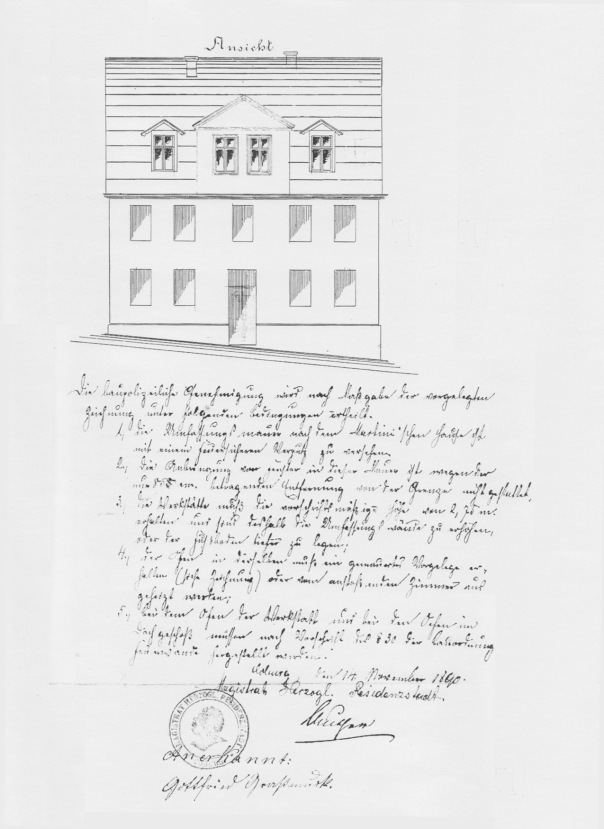 Ansicht
Die baupolizeiliche Genehmigung wird nach Maßgabe der vorgelegten
Zeichnung unter folgenden Bedingungen ertheilt.
1., die Umfassungsmauer nach dem Martini'schen Hause ist
mit einem feuersicheren Verputz zu versehen.
2., die Anbringung von in dieser Mauer ist wegen der
nur betragenden Entfernung von der Grenze nicht gestattet,
3., die Werkstätte muß die vorschriftsmäßige Höhe von 2,75 m.
erhalten und sind deshalb die Umfassungswände zu erhöhen,
oder der Fußboden tiefer zu legen;
4., der Ofen in derselben muß ein gemauertes Vorgelege er-
halten (siehe Zeichnung) oder vom anstoßenden Zimmer aus
geheizt werden;
5., bei dem Ofen der Werkstatt und bei den Ofen im
Dachgeschoß müssen nach Vorschrift des § 30 der Bauordnung
hergestellt werden.
Coburg, den 14. November 1890.
Magistrat Herzogl. Residenzstadt.
Anerkannt:
Gottfried Graßmuck.